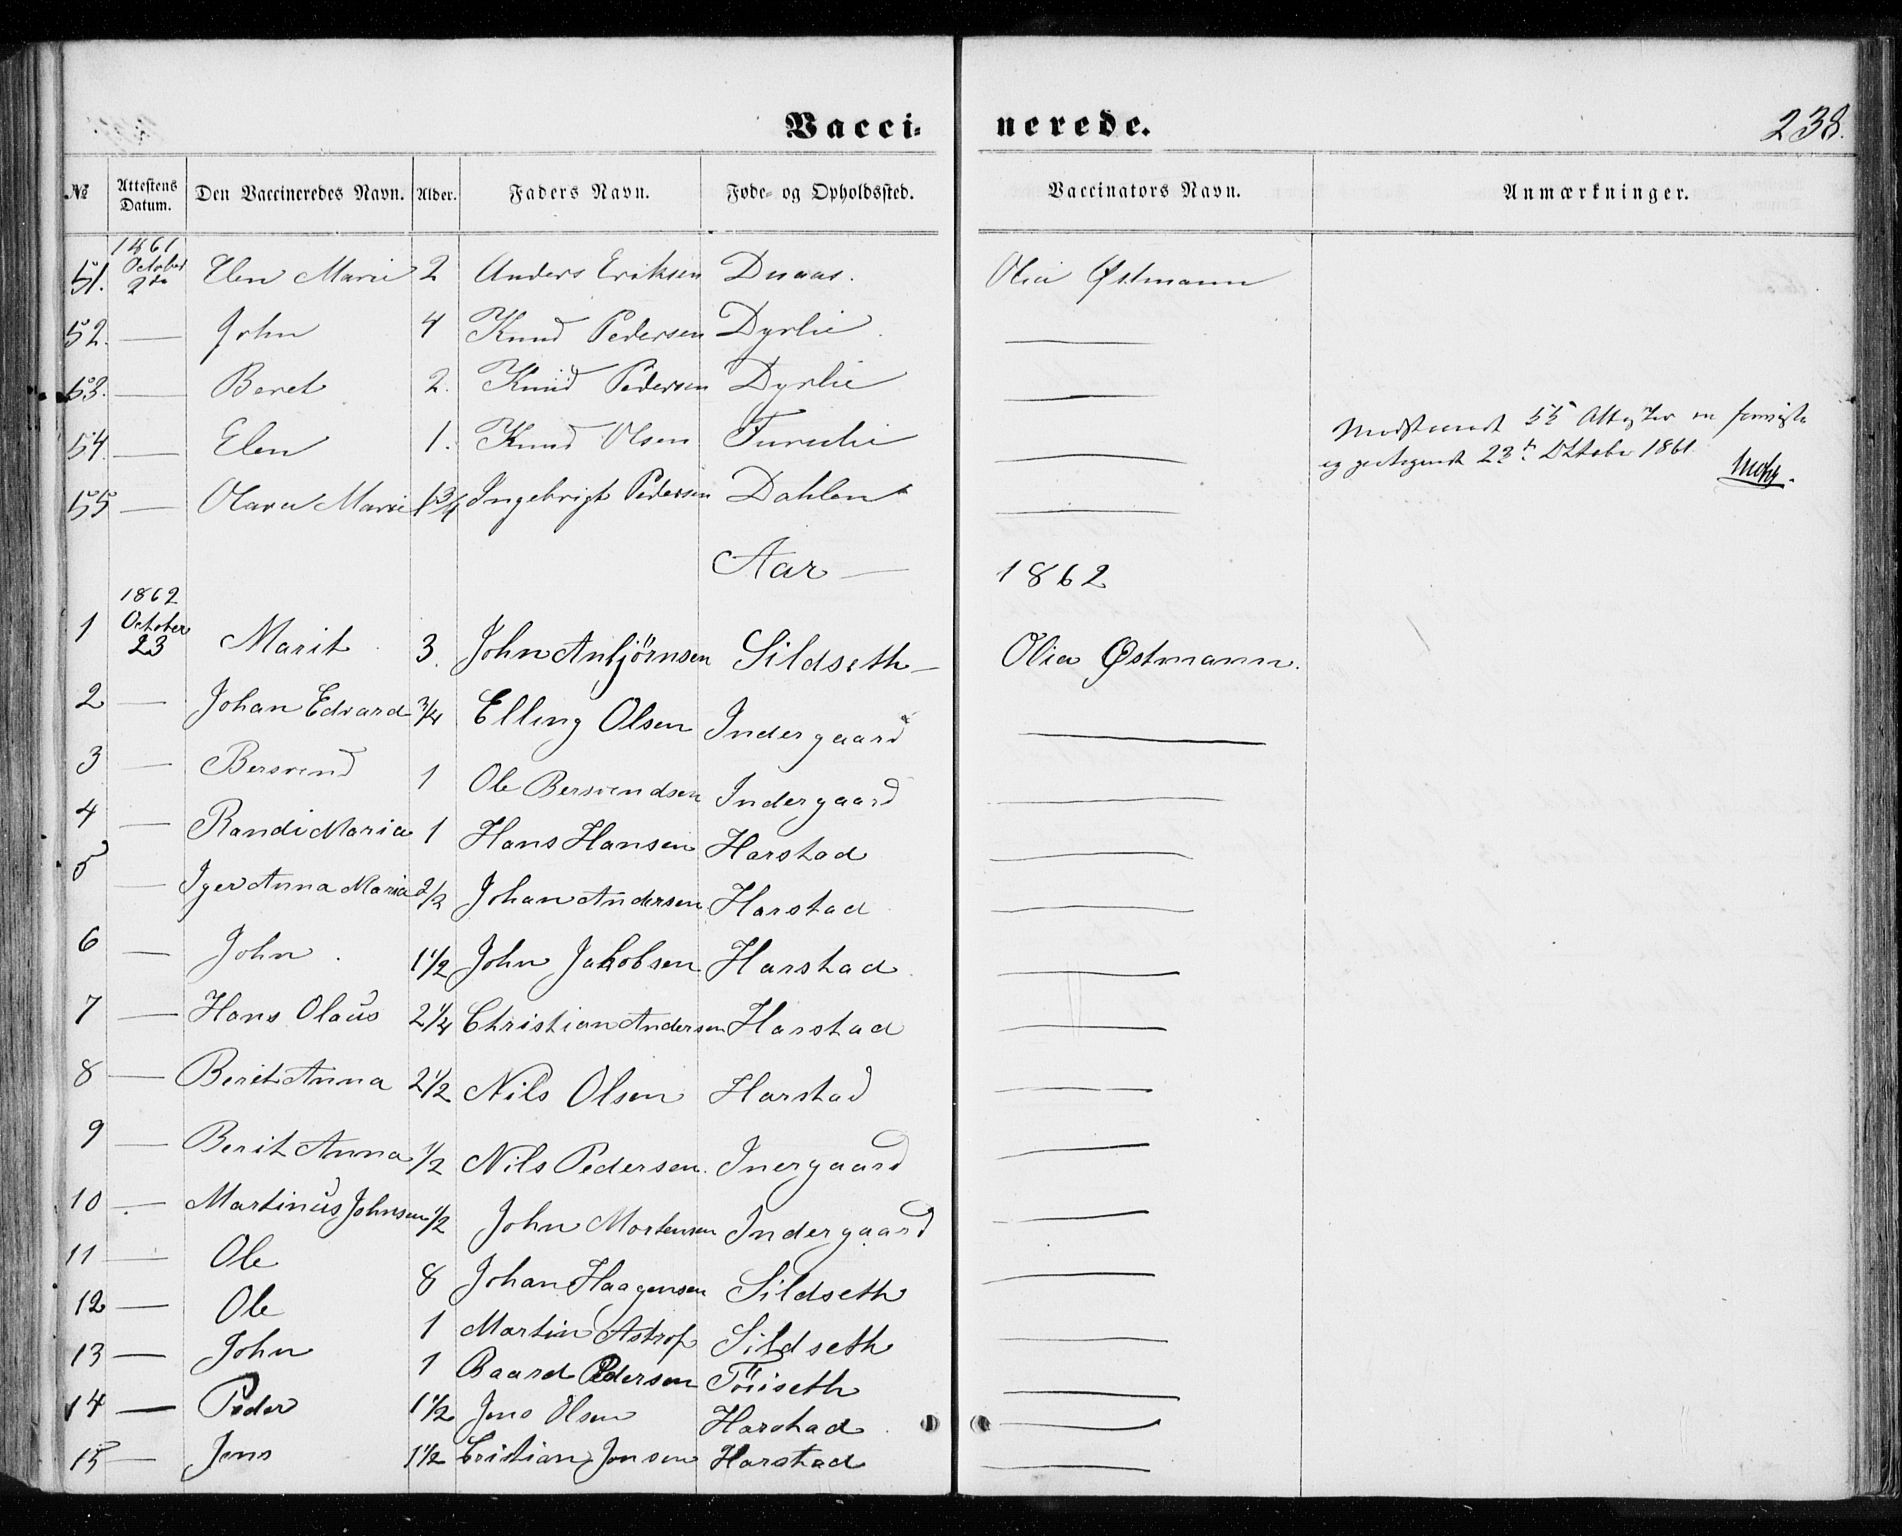 Vacci-nerede. 238.
№ Attestens Datum. Den Vaccineredes Navn. Alder. Faders Navn. Føde- og Opholdssted. Vaccinators Navn. Anmærkninger.
1861
51. October 2de Elen Marie 2 Anders Eriksen Duaas. Olia Østmann
52. — John 4 Knud Pedersen Dyrlie —
53. — Beret 2. Knud Pedersen Dyrlie —
54. — Elen 1. Knud Olsen —
55 — Olava Marie 1 3/4 Ingebrigt Pedersen Dahlen —
55 Attester
23 Oktober 1861
Aar — 1862
1862
1 October 23 Marit 3. John Anbjörnsen Sildseth — Olia Østmann.
2 — Johan Edvard 3/4 Elling Olsen Indergaard —
3 — Bersvend 1 Ole Bersvendsen Indergaard —
4 — Randi Maria 1 Hans Hansen Harstad —
5 — Iger Anna Maria 2/2 Johan Andersen Harstad —
6 — John 1 1/2 John Jakobsen Harstad —
7 — Hans Olaus 2 1/4 Christian Andersen Harstad —
8 — Berit Anna 2 1/2 Nils Olsen Harstad —
9 — Berit Anna 1/2 Nils Pedersen. Inergaard —
10 — Martinus Johnsen 1/2 John Mortensen Indergaard —
11 — Ole 8 Johan Haagensen Sildseth —
12 — Ole 1 Martin Astrop Sildseth —
13 — John 1 Baard Pedersen Töriseth —
14 — Peder 1 1/2 Jens Olsen Harstad —
15 — Jens 1 1/2 Cristian Jonsen Harstad —